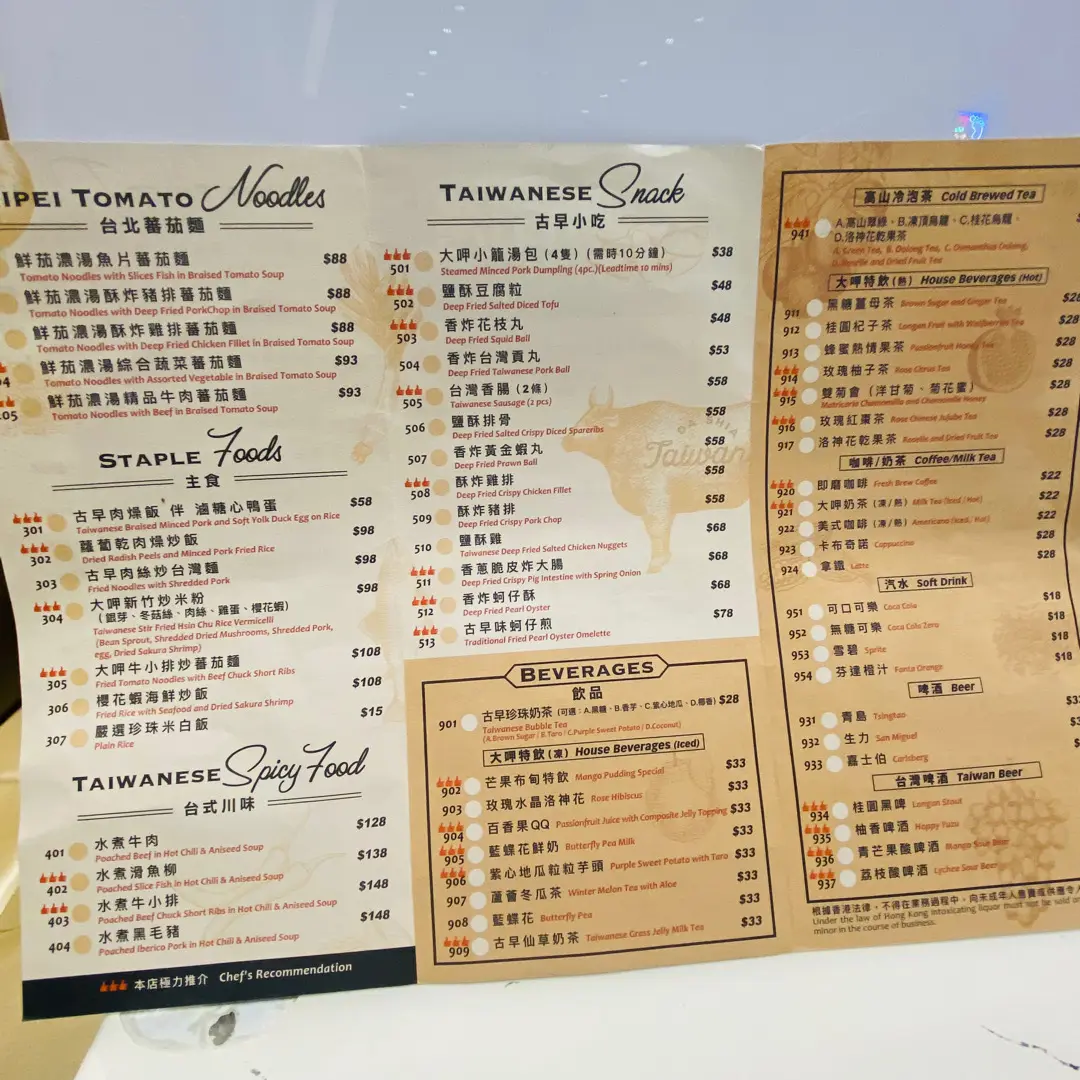 IPEI TOMATO Noodles
台北蕃茄麵
鮮茄濃湯魚片蕃茄麵 $88
Tomato Noodles with Slices Fish in Braised Tomato Soup
鮮茄濃湯酥炸豬排蕃茄麵 $88
Tomato Noodles with Deep Fried PorkChop in Braised Tomato Soup
鮮茄濃湯酥炸雞排蕃茄麵 $88
Tomato Noodles with Deep Fried Chicken Fillet in Braised Tomato Soup
04 鮮茄濃湯綜合蔬菜蕃茄麵 $93
Tomato Noodles with Assorted Vegetable in Braised Tomato Soup
05 鮮茄濃湯精品牛肉蕃茄麵 $93
Tomato Noodles with Beef in Braised Tomato Soup
STAPLE Foods
主食
301 古早肉燥飯 伴 滷糖心鴨蛋 $58
Taiwanese Braised Minced Pork and Soft Yolk Duck Egg on Rice
302 蘿蔔乾肉燥炒飯 $98
Dried Radish Peels and Minced Pork Fried Rice
303 古早肉絲炒台灣麵 $98
Fried Noodles with Shredded Pork
304 大呷新竹炒米粉 $98
(銀芽、冬菇絲、肉絲、雞蛋、櫻花蝦)
Taiwanese Stir Fried Hsin Chu Rice Vermicelli
(Bean Sprout, Shredded Dried Mushrooms, Shredded Pork,
egg, Dried Sakura Shrimp)
305 大呷牛小排炒蕃茄麵 $108
Fried Tomato Noodles with Beef Chuck Short Ribs
306 櫻花蝦海鮮炒飯 $108
Fried Rice with Seafood and Dried Sakura Shrimp
307 嚴選珍珠米白飯 $15
Plain Rice
TAIWANESE Spicy Food
台式川味
401 水煮牛肉 $128
Poached Beef in Hot Chili & Aniseed Soup
402 水煮滑魚柳 $138
Poached Slice Fish in Hot Chili & Aniseed Soup
403 水煮牛小排 $148
Poached Beef Chuck Short Ribs in Hot Chili & Aniseed Soup
404 水煮黑毛豬 $148
Poached Iberico Pork in Hot Chili & Aniseed Soup
本店極力推介 Chef's Recommendation
TAIWANESE Snack
古早小吃
501 大呷小籠湯包 (4隻) (需時10分鐘) $38
Steamed Minced Pork Dumpling (4pc.)(Leadtime 10 mins)
502 鹽酥豆腐粒 $48
Deep Fried Salted Diced Tofu
503 香炸花枝丸 $48
Deep Fried Squid Ball
504 香炸台灣貢丸 $53
Deep Fried Taiwanese Pork Ball
505 台灣香腸 (2條) $58
Taiwanese Sausage (2 pcs)
506 鹽酥排骨 $58
Deep Fried Salted Crispy Diced Spareribs
507 香炸黃金蝦丸 $58
Deep Fried Prawn Ball
508 酥炸雞排 $58
Deep Fried Crispy Chicken Fillet
509 酥炸豬排 $58
Deep Fried Crispy Pork Chop
510 鹽酥雞 $68
Taiwanese Deep Fried Salted Chicken Nuggets
511 香蔥脆皮炸大腸 $68
Deep Fried Crispy Pig Intestine with Spring Onion
512 香炸蚵仔酥 $68
Deep Fried Pearl Oyster
513 古早味蚵仔煎 $78
Traditional Fried Pearl Oyster Omelette
DA SHIA
Taiwan
BEVERAGES
飲品
901 古早珍珠奶茶 (可選:A.黑糖、B.香芋、C.紫心地瓜、D.椰香) $28
Taiwanese Bubble Tea
(A.Brown Sugar / B.Taro / C.Purple Sweet Potato / D.Coconut)
大呷特飲 (凍) House Beverages (Iced)
902 芒果布甸特飲 Mango Pudding Special $33
903 玫瑰水晶洛神花 Rose Hibiscus $33
904 百香果QQ Passionfruit Juice with Composite Jelly Topping $33
905 藍蝶花鮮奶 Butterfly Pea Milk $33
906 紫心地瓜粒粒芋頭 Purple Sweet Potato with Taro $33
907 蘆薈冬瓜茶 Winter Melon Tea with Aloe $33
908 藍蝶花 Butterfly Pea $33
909 古早仙草奶茶 Taiwanese Grass Jelly Milk Tea $33
高山冷泡茶 Cold Brewed Tea
941 A.高山翠綠、B.凍頂烏龍、C.桂花烏龍、
D.洛神花乾果茶
A. Green Tea, B. Oolong Tea, C. Osmanthus Oolong,
D. Roselle and Dried Fruit Tea
大呷特飲 (熱) House Beverages (Hot)
911 黑糖薑母茶 Brown Sugar and Ginger Tea $28
912 桂圓杞子茶 Longan Fruit with Wolfberries Tea $28
913 蜂蜜熱情果茶 Passionfruit Honey Tea $28
914 玫瑰柚子茶 Rose Citrus Tea $28
915 雙菊會 (洋甘菊、菊花蜜) $28
Matricaria Chamomilla and Chamomile Honey
916 玫瑰紅棗茶 Rose Chinese Jujube Tea $28
917 洛神花乾果茶 Roselle and Dried Fruit Tea $28
咖啡/奶茶 Coffee/Milk Tea
920 即磨咖啡 Fresh Brew Coffee $22
921 大呷奶茶 (凍/熱) Milk Tea (Iced / Hot) $22
922 美式咖啡 (凍/熱) Americano (Iced / Hot) $22
923 卡布奇諾 Cappuccino $28
924 拿鐵 Latte $28
汽水 Soft Drink
951 可口可樂 Coca Cola $18
952 無糖可樂 Coca Cola Zero $18
953 雪碧 Sprite $18
954 芬達橙汁 Fanta Orange $18
啤酒 Beer
931 青島 Tsingtao
932 生力 San Miguel
933 嘉士伯 Carlsberg
台灣啤酒 Taiwan Beer
934 桂圓黑啤 Longan Stout
935 柚香啤酒 Hoppy Yuzu
936 青芒果酸啤酒 Mango Sour Beer
937 荔枝酸啤酒 Lychee Sour Beer
根據香港法律,不得在業務過程中,向未成年人售賣或供應令人
Under the law of Hong Kong intoxicating liquor must not be sold or
minor in the course of business.